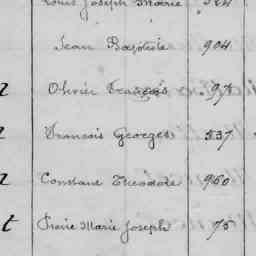 Louis Joseph Marie 524
Jean Baptiste 904
n Olivier François 97
n Francois Georges 537
n Constant Theodore 960
t Marie Joseph 75